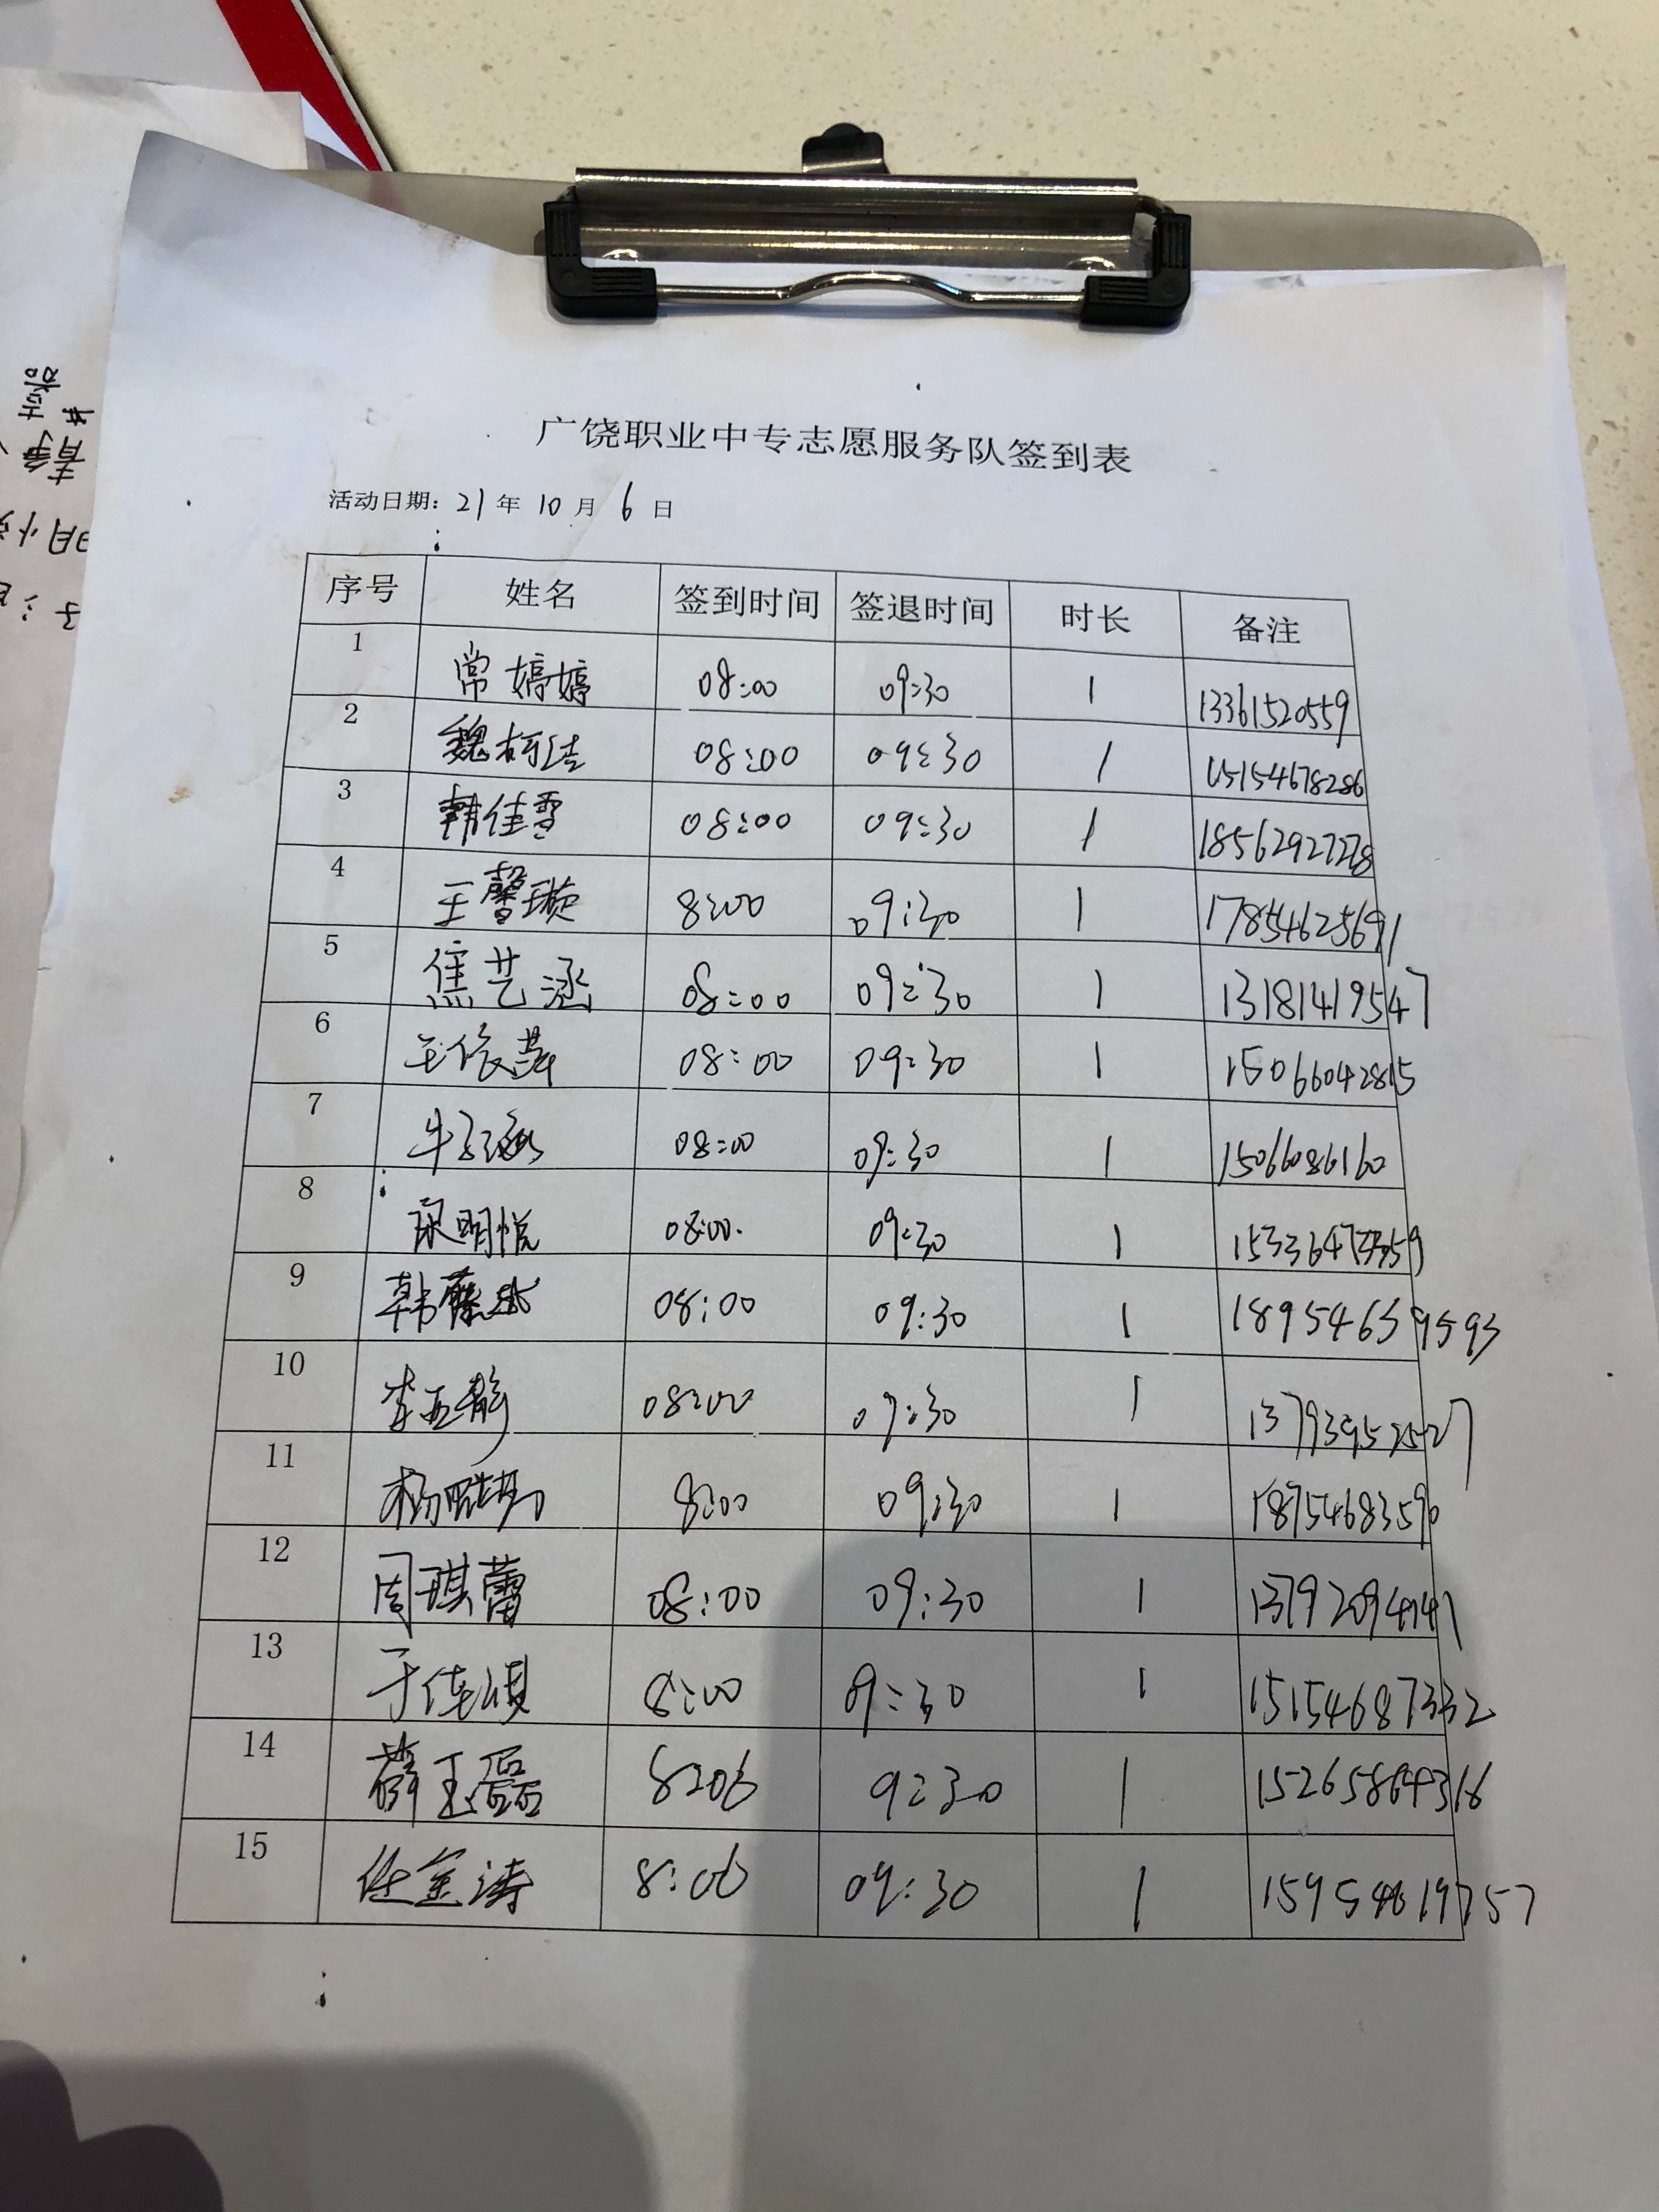 广饶职业中专志愿服务队签到表
活动日期: 21 年 10 月 6 日
序号 姓名 签到时间 签退时间 时长 备注
1 常婷婷 08:00 09:30 1 13361520559
2 魏柯洁 08:00 09:30 1 15154678286
3 韩佳雪 08:00 09:30 1 18562927278
4 王馨璇 8:00 09:30 1 17854625691
5 焦艺涵 08:00 09:30 1 13181419547
6 王依萍 08:00 09:30 1 15066042815
7 牛子涵 08:00 09:30 1 15066086160
8 08:00 09:30 1
9 08:00 09:30 1 18954639593
10 李亚静 08:00 09:30 1 13793952527
11 8:00 09:30 1 18754683590
12 周琪蕾 08:00 09:30 1 13792094141
13 于佳淇 8:00 09:30 1 15154687332
14 薛玉磊 8:00 9:30 1 15265864316
15 任金涛 8:00 09:30 1 15954619757